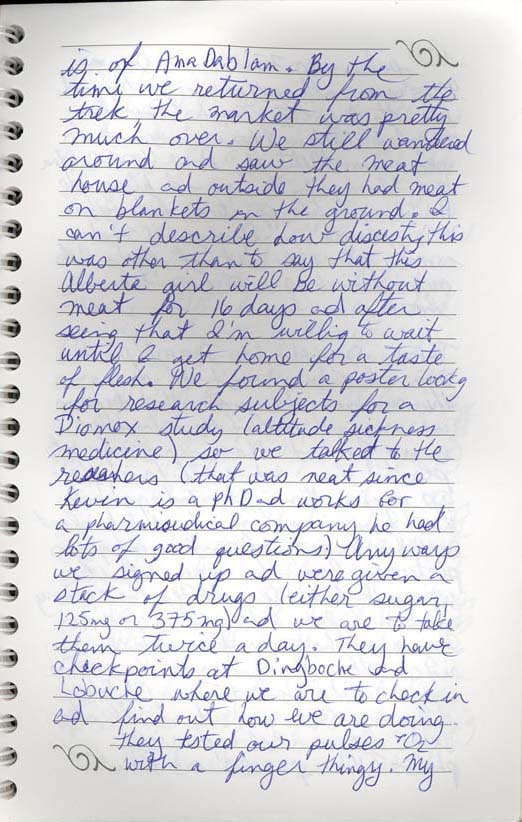 is of Ama Dablam. By the
time we returned from the
trek, the market was pretty
much over. We still wandered
around and saw the meat
house ad outside they had meat
on blankets on the ground. I
can't describe how discusting this
was other than to say that this
Alberta girl will be without
meat for 16 days ad after
seeing that I'm willing to wait
until I get home for a taste
of flesh. We found a poster lookg
for research subjects for a
Diomox study (altitude sickness
medicine) so we talked to the
(that was neat since
Kevin is a phD ad works for
a pharmisudical company he had
lots of good questions) Any ways
we signed up ad were given a
stack of drugs (either sugar,
125mg or 375mg) ad we are to take
them twice a day. They have
checkpoints at Dingboche and
Lobuche where we are to check in
ad find out how we are doing.
They tsted our pulses + O2
with a finger thingy. My